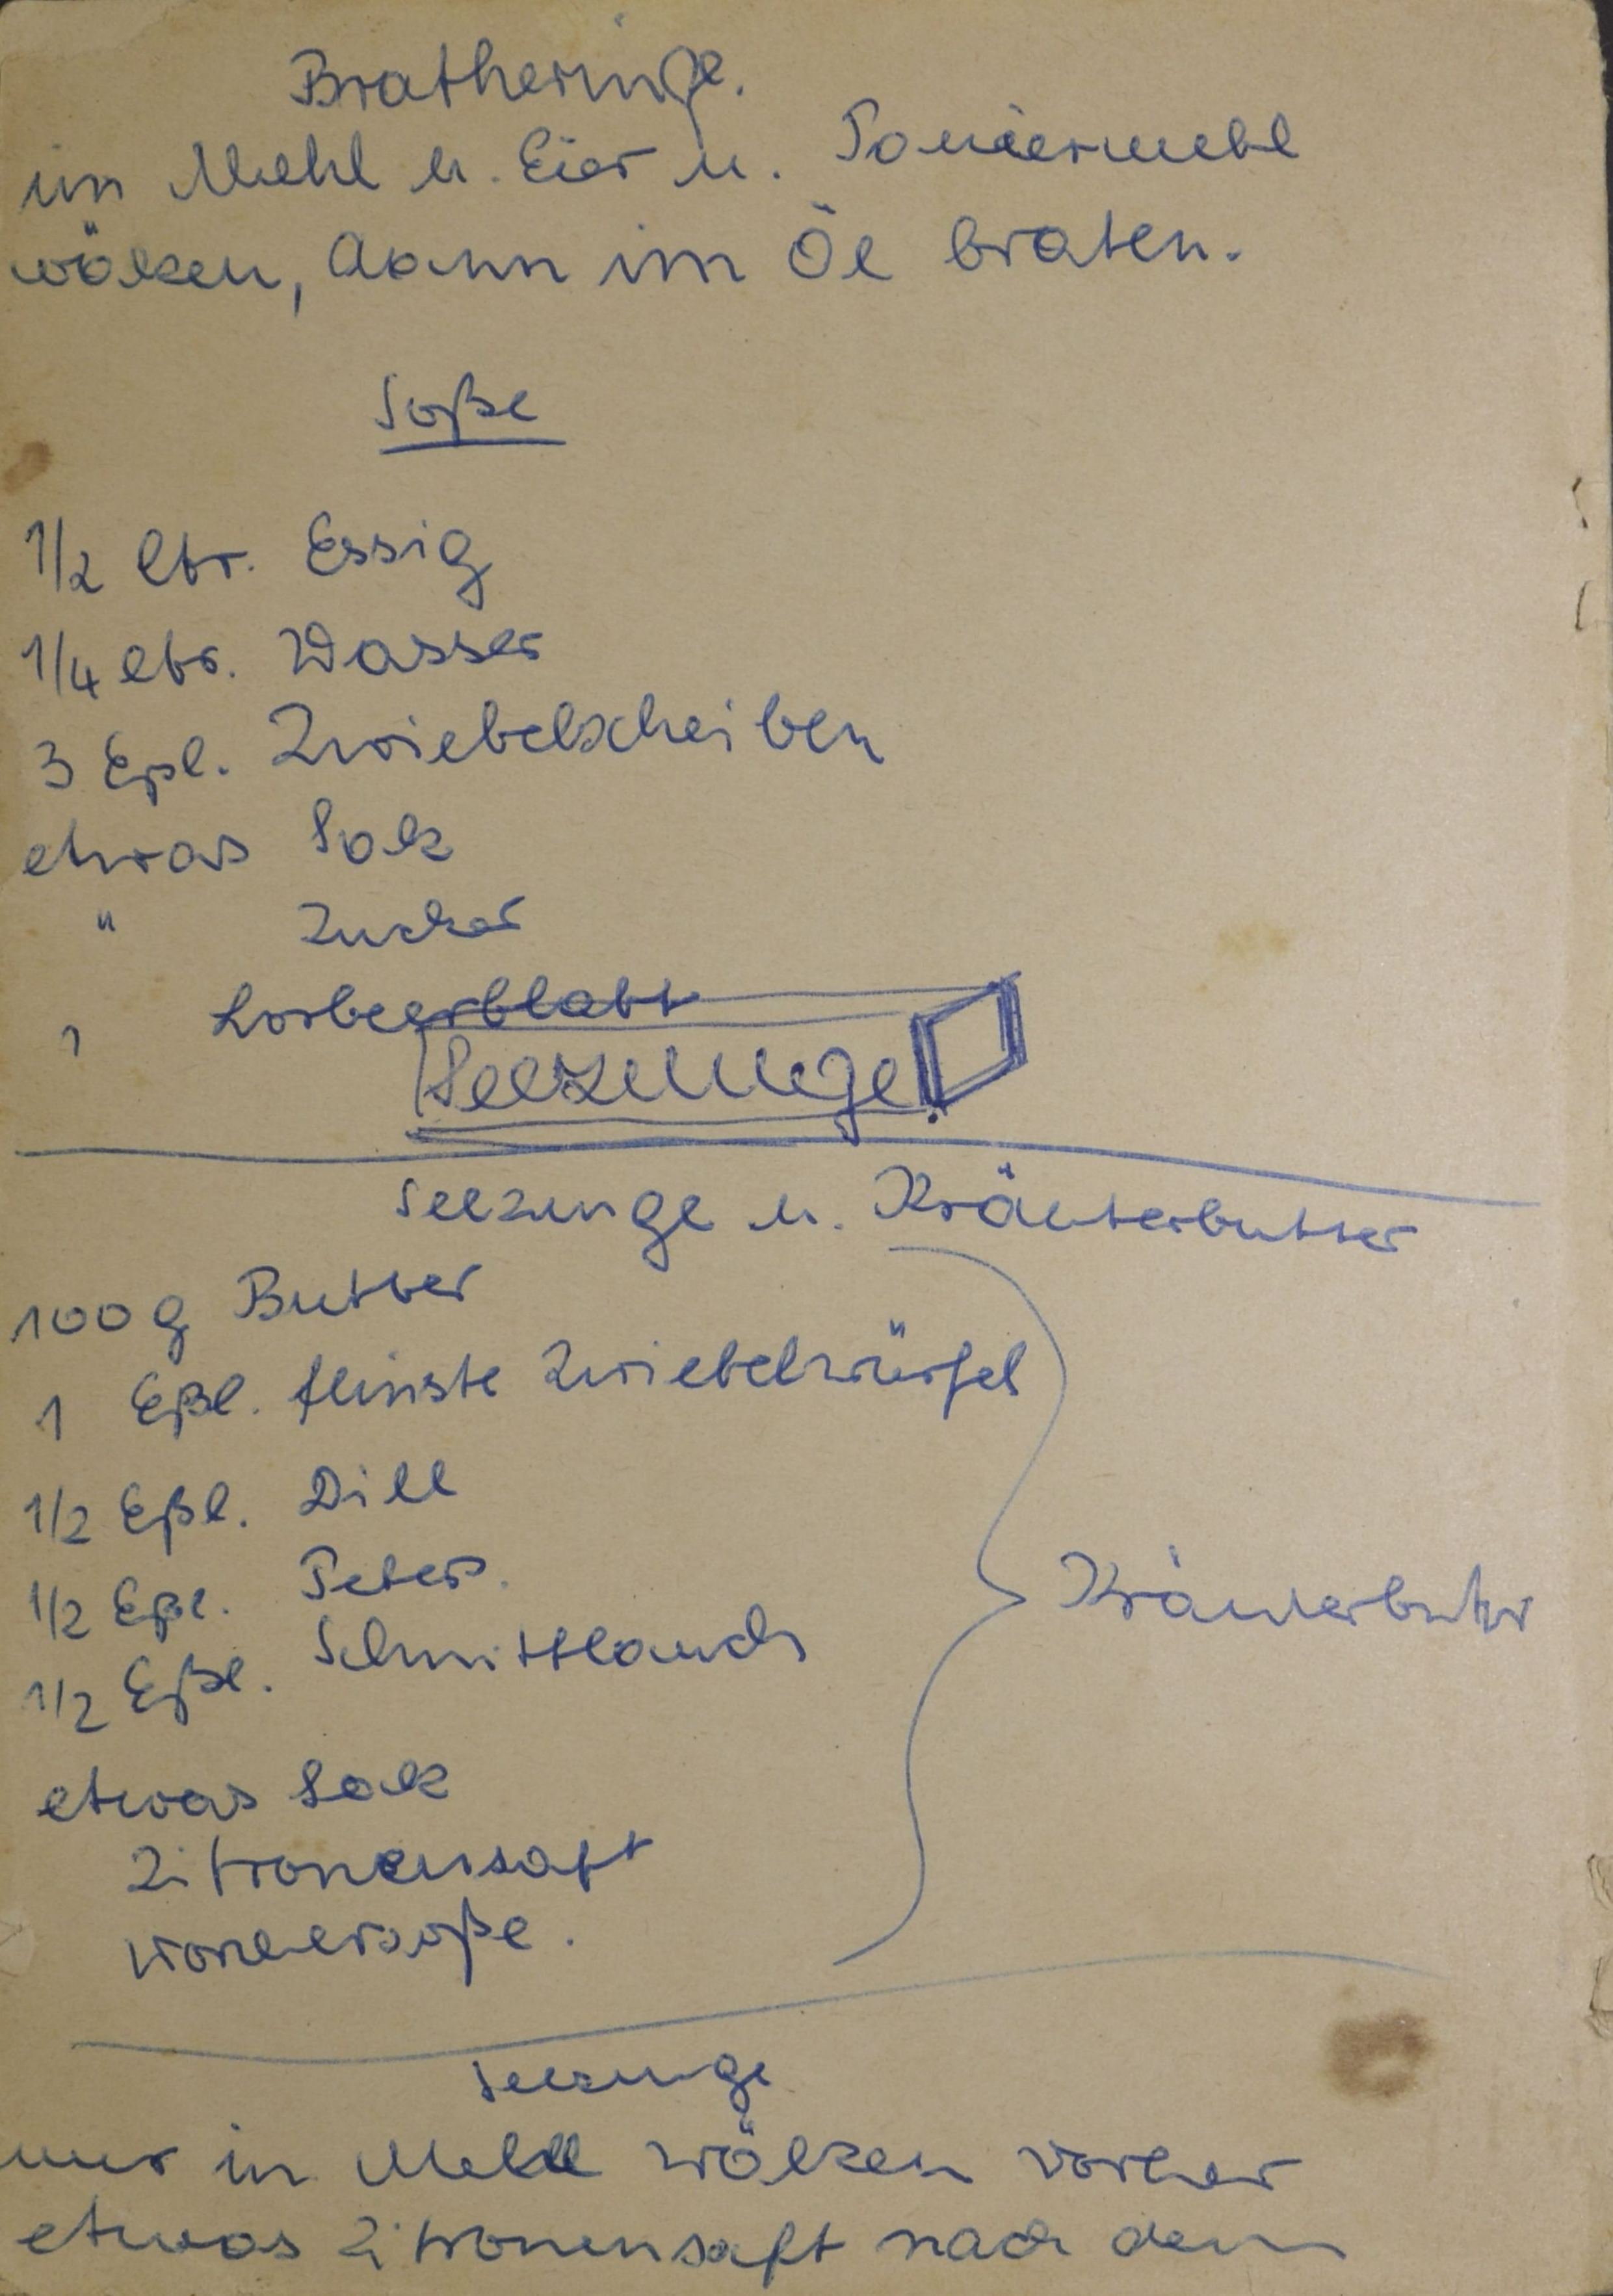 Bratheringe.
im Mehl u. Eier u. Paniermehl
wälzen, dann im Öl braten.
Soße
1/2 ltr. Essig
1/4 ltr. Wasser
3 Eßl. Zwiebelscheiben
etwas Salz
" Zucker
1 Lorbeerblatt
Seezunge.
Seezunge u. Kräuterbutter
100 g Butter
1 Eßl. feinste Zwiebelwürfel
1/2 Eßl. Dill
1/2 Eßl. Peters.
1/2 Eßl. Schnittlauch
Kräuterbutter
etwas Salz
Zitronensaft
Seezunge
nur in Mehl wälzen vorher
etwas Zitronensaft nach dem